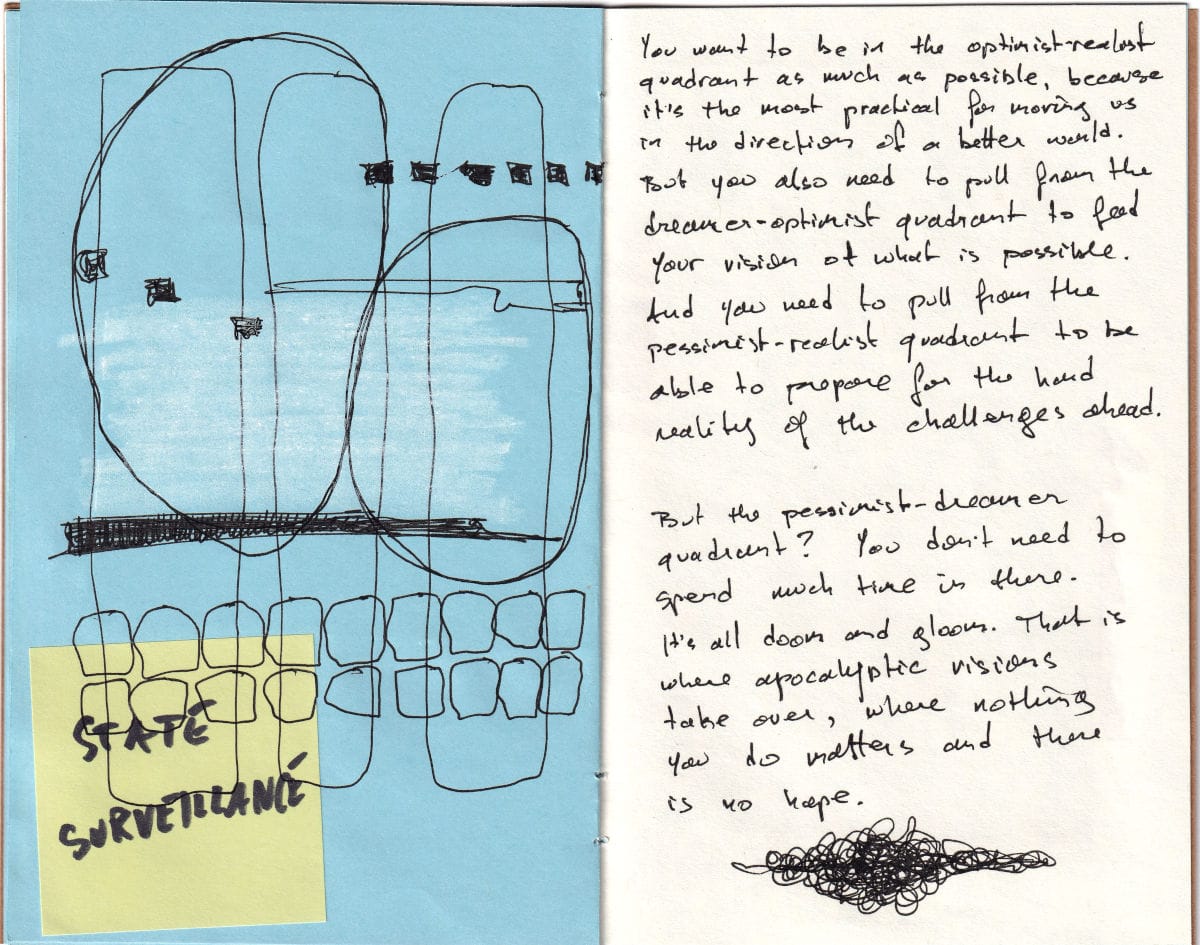 STATE
SURVEILLANCE
You want to be in the optimist-realist
quadrant as much as possible, because
it's the most practical for moving us
in the direction of a better world.
But you also need to pull from the
dreamer-optimist quadrant to feed
your vision of what is possible.
And you need to pull from the
pessimist-realist quadrant to be
able to prepare for the hard
reality of the challenges ahead.
But the pessimist-dreamer
quadrant? You don't need to
spend much time in there.
It's all doom and gloom. That is
where apocalyptic visions
take over, where nothing
you do matters and there
is no hope.